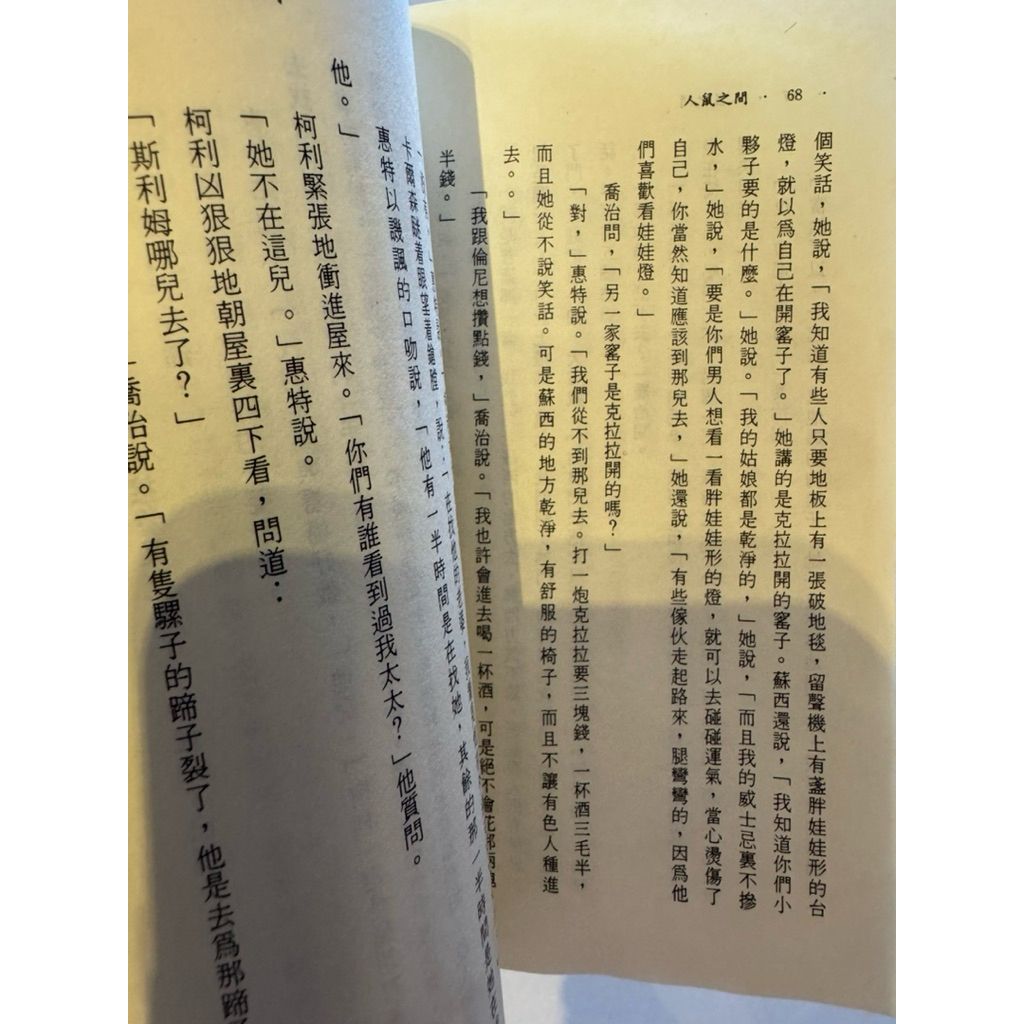 人鼠之間 · 68 ·
個笑話，她說，「我知道有些人只要地板上有一張破地毯，留聲機上有盞胖娃娃形的台
燈，就以爲自己在開窰子了。」她講的是克拉拉開的窰子。蘇西還說，「我知道你們小
夥子要的是什麼。」她說。「我的姑娘都是乾淨的，」她說，「而且我的威士忌裏不摻
水，」她說，「要是你們男人想看一看胖娃娃形的燈，就可以去碰碰運氣，當心燙傷了
自己，你當然知道應該到那兒去，」她還說，「有些傢伙走起路來，腿彎彎的，因爲他
們喜歡看娃娃燈。」
喬治問，「另一家窰子是克拉拉開的嗎？」
「對，」惠特說。「我們從不到那兒去。打一炮克拉拉要三塊錢，一杯酒三毛半，
而且她從不說笑話。可是蘇西的地方乾淨，有舒服的椅子，而且不讓有色人種進
去。。」
「我跟倫尼想攢點錢，」喬治說。「我也許會進去喝一杯酒，可是絕不會花那兩塊
半錢。」
卡爾森瞇着眼望着鎗膛，說：「在找他的老婆，
惠特以譏諷的口吻說，「他有一半時間是在找她，其餘的那一半時間是
他。」
柯利緊張地衝進屋來。「你們有誰看到過我太太？」他質問。
「她不在這兒。」惠特說。
柯利凶狠狠地朝屋裏四下看，問道：
「斯利姆哪兒去了？」
」喬治說。「有隻騾子的蹄子裂了，他是去爲那蹄